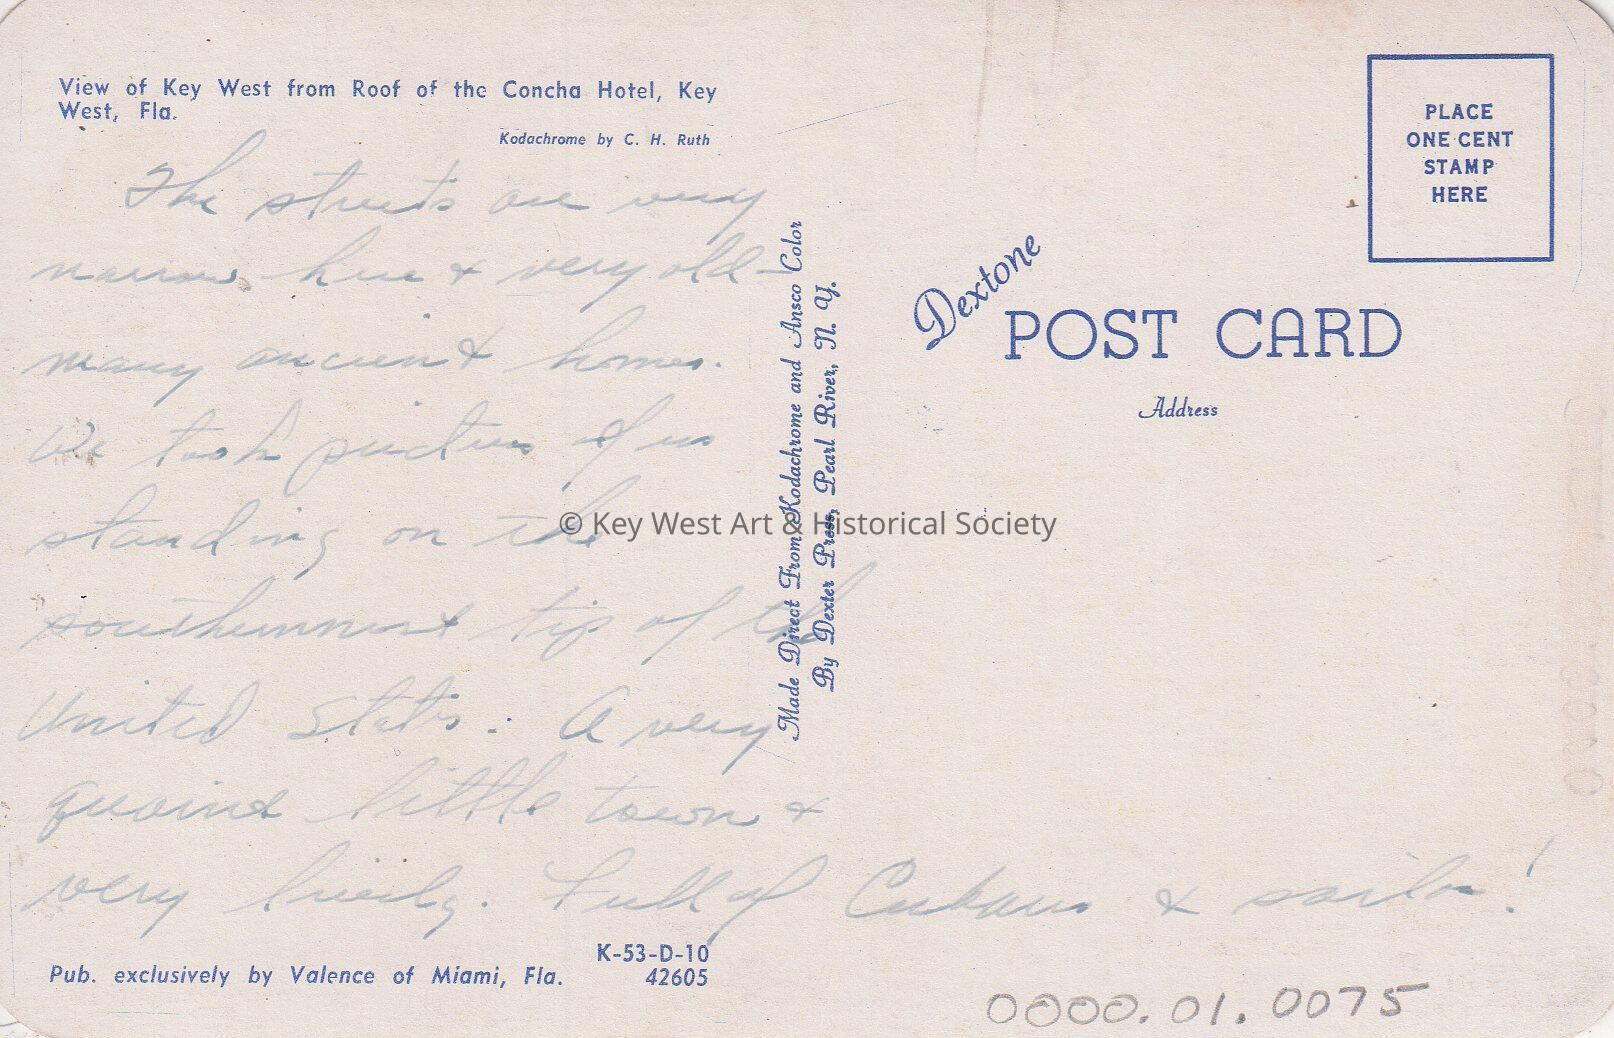 View of Key West from Roof of the Concha Hotel, Key
West, Fla.
Kodachrome by C. H. Ruth
The streets are very
narrow here & very old –
many ancient homes.
We took pictures of us
standing on the
southernmost tip of the
United States. A very
quaint little town &
very lively. Full of Cubans & sailors!
K-53-D-10
Pub. exclusively by Valence of Miami, Fla. 42605
Made Direct From Kodachrome and Ansco Color
By Dexter Press, Pearl River, N. Y.
PLACE
ONE CENT
STAMP
HERE
Dextone
POST CARD
Address
© Key West Art & Historical Society
0000.01.0075